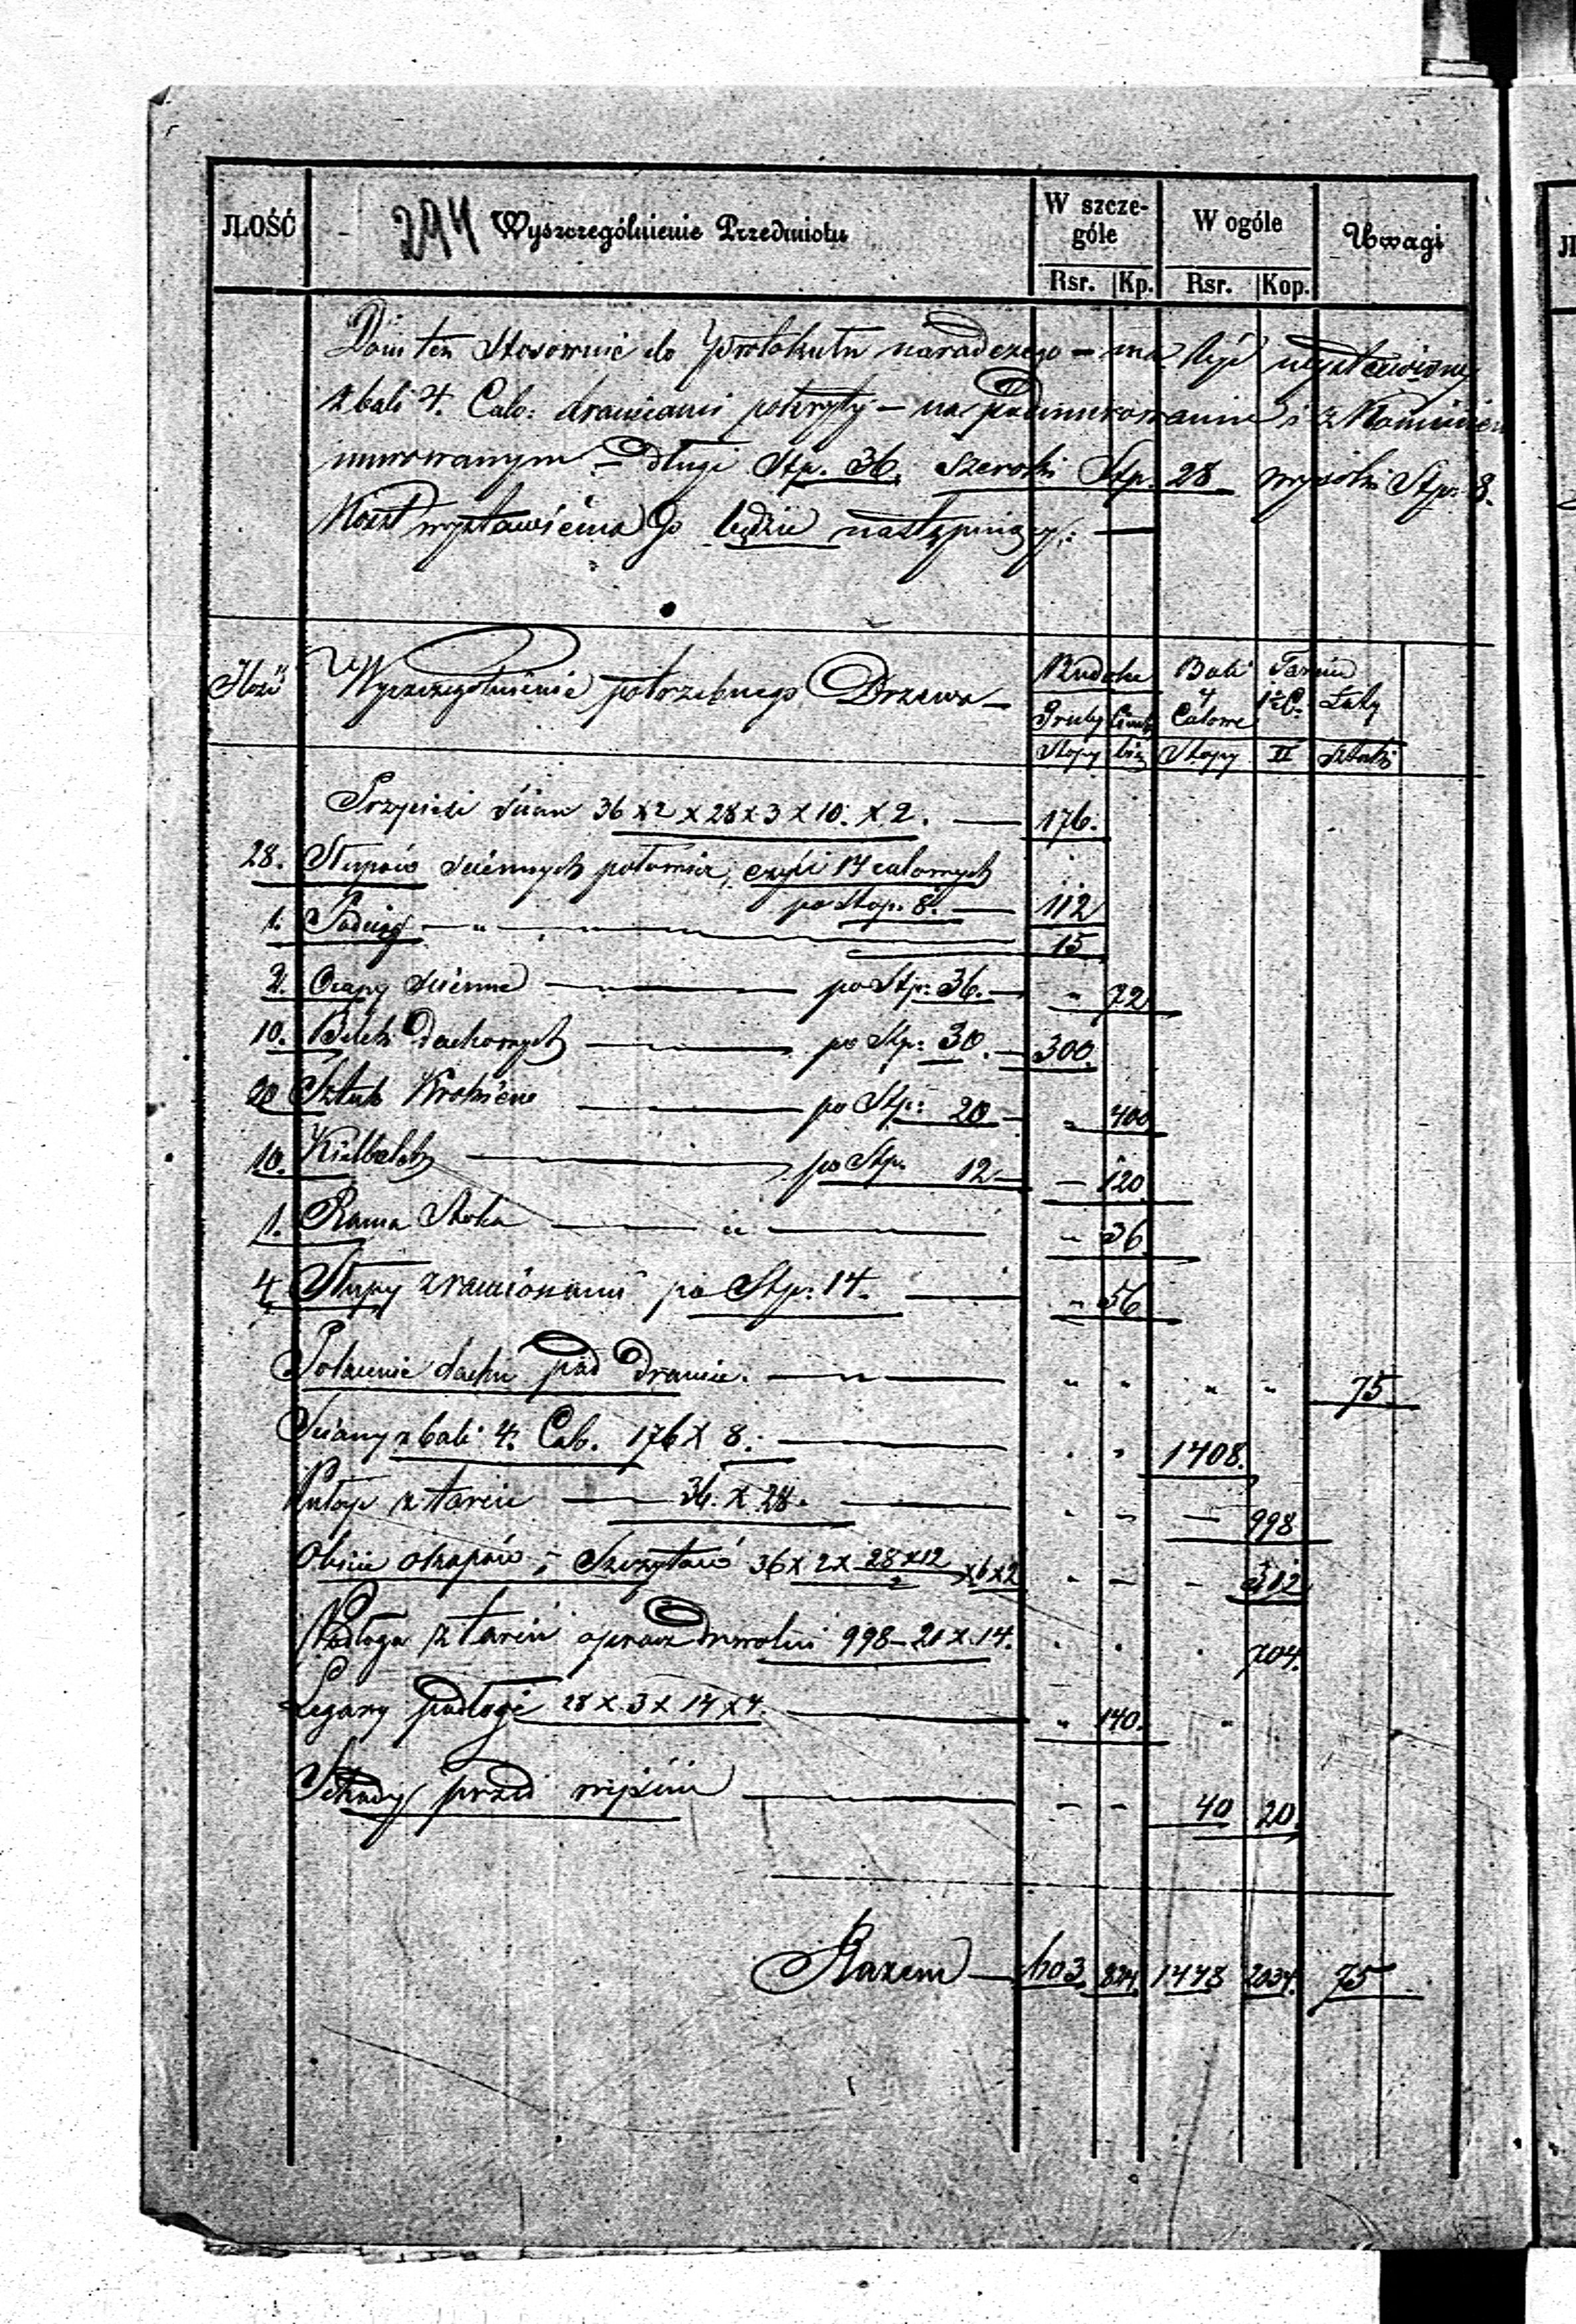 JLOŚĆ 294 Wyszczególnienie Przedmiotu W szcze-góle W ogóle Uwagi
Rsr. Kp. Rsr. Kop.
Dom ten stosownie do Protokułu naradczego – ma być wystawiony
z bali 4. Calo: dranicami pokryty – na podmurowaniu i z Kominem
murowanym – długi Stp. 36. Szeroki Stp. 28 wysoki Stp. 8.
Koszt wystawienia Go będzie następujący: —
Ilość Wyszczególnienie potrzebnego Drzewa – Bali Tarcic
4 Calowe 1½ C. Łaty
Stopy Stopy II Sztuki
Przyciesi ścian 36 x 2 x 28 x 3 x 10. x 2. — 176.
28. Słupów ściennych połowiz, czyli 14 calowych
po stop. 8. — 112
1. Podciąg — " — 15
2. Ocapy ścienne — po Stp: 36. — " 72
10. Belek Dachowych — po Stp: 30. — 300.
20 Sztuk Krokwi — po Stp: 20 — " 400
10. — po Stp. 12 — – 120
1. Rama — " — " 36
4 Słupy z po Stp: 14. — " 56
Połacenie dachu pod Dranice. — " — " " " " 75
Ściany z bali 4. Cal. 176 x 8. — " " 1408.
Pułap z tarcic — 36. x 28. — " " – 998
Obicie okapów i Szczytów 36 x 2 x 28x12/2 x 6 x 2 " – – 312
Podłoga z tarcic oprócz 998 – 21 x 14. 704.
Legary podłogi 28 x 3 x 14 x 4. — " 140. "
Schody przed — – – 40 20.
Razem — 603. 824. 1448 2034. 75